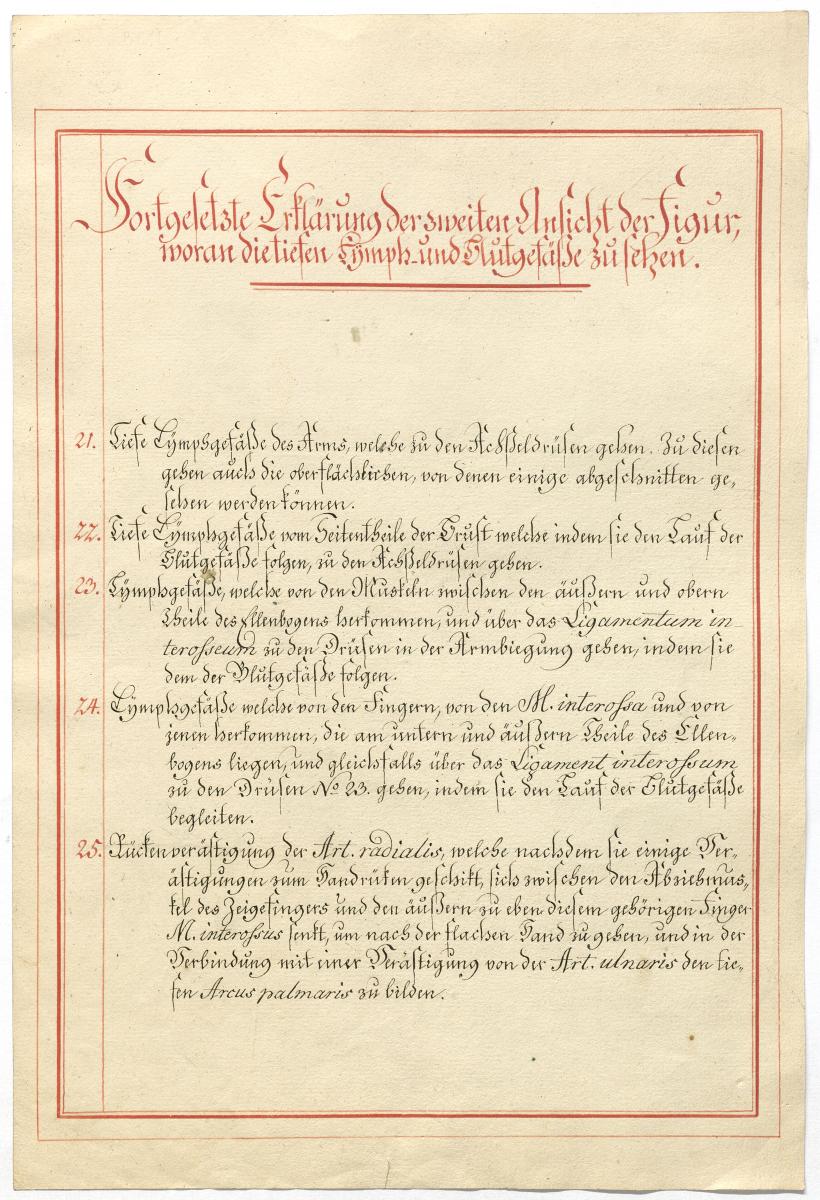 Fortgesetzte Erklärung der zweiten Ansicht der Figur,
woran die tiefen Lymph- und Blutgefäße zu sehen.
21. Tiefe Lymphgefäße des Arms, welche zu den Achßeldrüsen gehen. Zu diesen
gehen auch die oberflächlichen, von denen einige abgeschnitten ge-
sehen werden können.
22. Tiefe Lymphgefäße vom Seitentheile der Brust welche indem sie den Lauf der
Blutgefäße folgen, zu den Achßeldrüsen gehen.
23. Lymphgefäße, welche von den Muskeln zwischen den äußern und obern
Theile des Ellenbogens herkommen, und über das Ligamentum in-
terosseum zu den Drüsen in der Armbiegung gehen, indem sie
dem der Blutgefäße folgen.
24. Lymphgefäße welche von den Fingern, von den M. interossa und von
jenen herkommen, die am untern und äußern Theile des Ellen-
bogens liegen, und gleichfalls über das Ligament interossum
zu den Drüsen No 23. gehen, indem sie den Lauf der Blutgefäße
begleiten.
25. Rückenverästigung der Art. radialis, welche nachdem sie einige Ver-
ästigungen zum Handrüken geschikt, sich zwischen den Abziehmus-
kel des Zeigefingers und den äußern zu eben diesem gehörigen Finger
M. interossus senkt, um nach der flachen Hand zu gehen, und in der
Verbindung mit einer Verästigung von der Art. ulnaris den tie-
fen Arcus palmaris zu bilden.